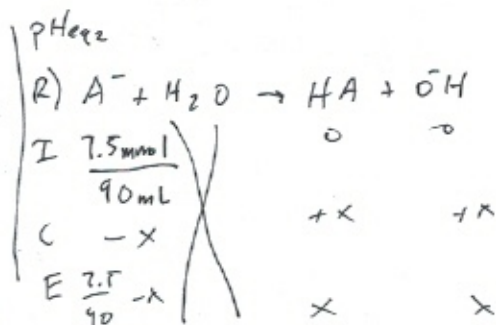 pHeq2
R) A⁻ + H₂O → HA + ⁻OH
I 7.5mmol/90mL 0 ~0
C -x +x +x
E 7.5/90 -x x x